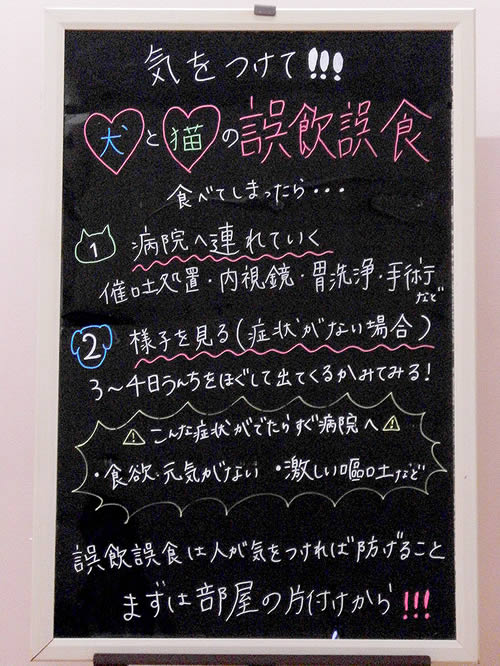 気をつけて!!!
犬と猫の誤飲誤食
食べてしまったら・・・
1 病院へ連れていく
催吐処置・内視鏡・胃洗浄・手術など
2 様子を見る(症状がない場合)
3～4日うんちをほぐして出てくるかみてみる!
⚠こんな症状がでたらすぐ病院へ⚠
・食欲・元気がない ・激しい嘔吐など
誤飲誤食は人が気をつければ防げること
まずは部屋の片付けから!!!